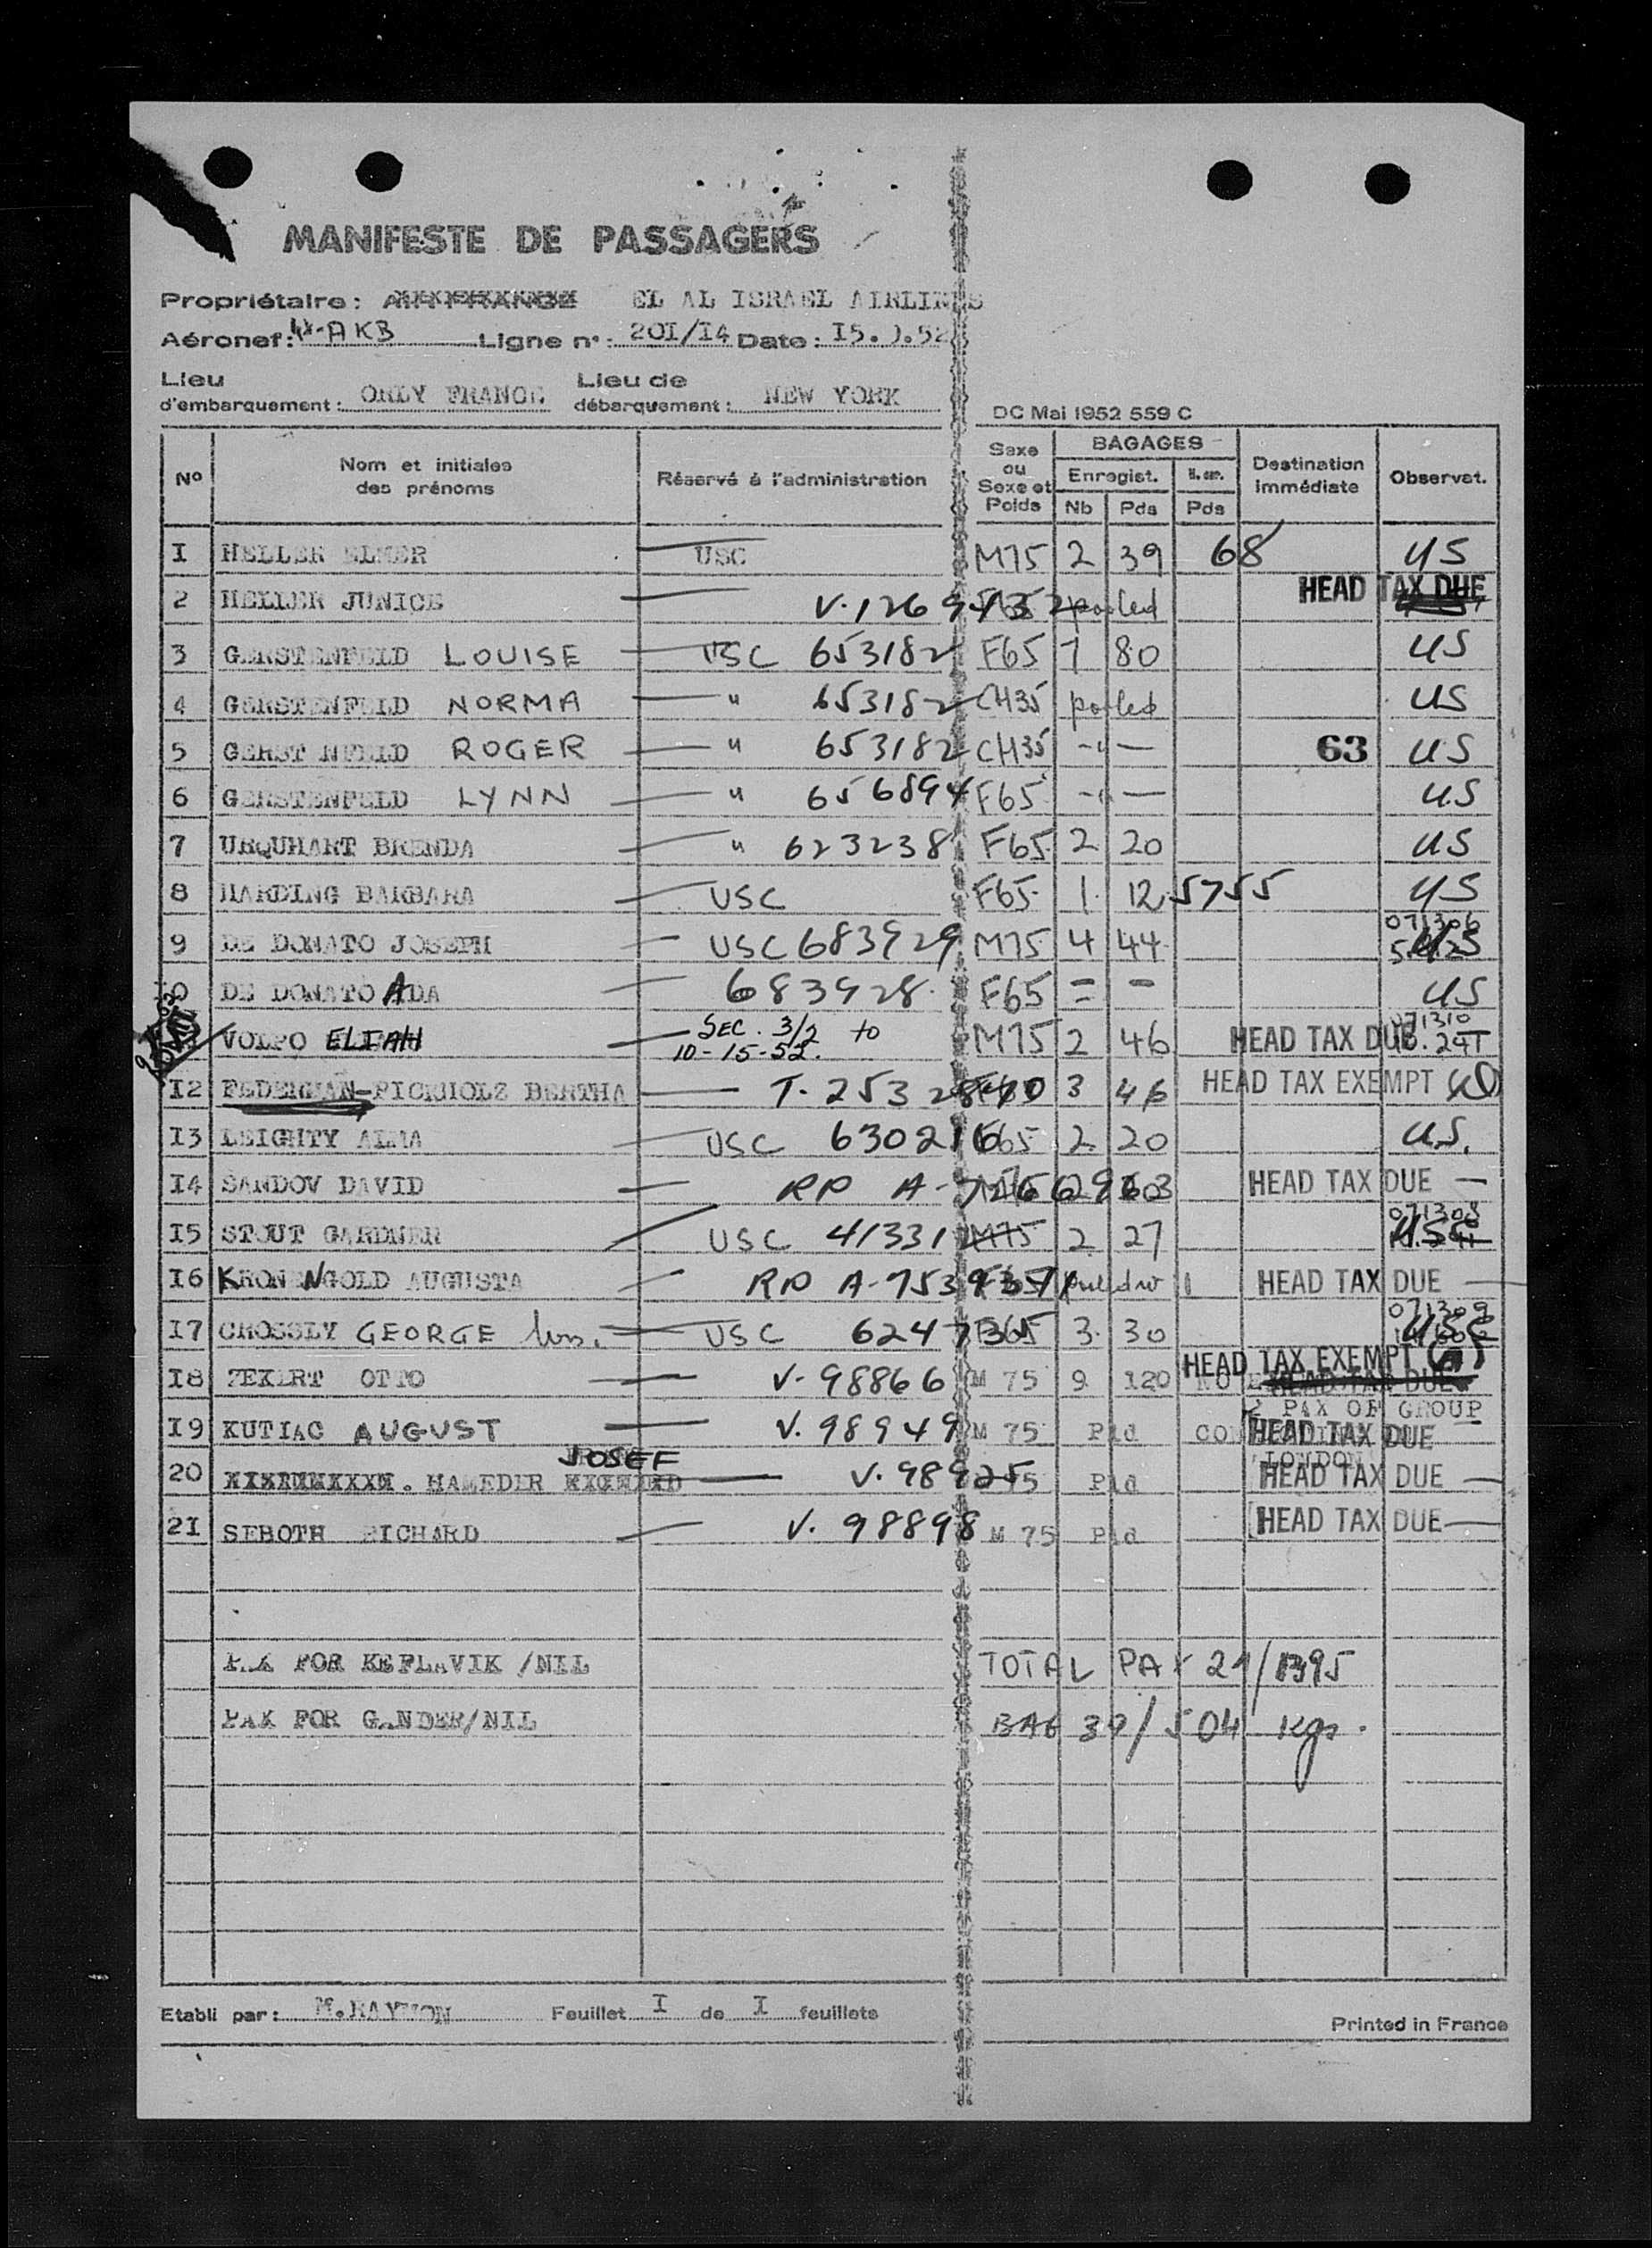 MANIFESTE DE PASSAGERS
Propriétaire: EL AL ISRAEL AIRLINES
Aéronef: 4X-AKB Ligne n°: 201/14 Date: 15. .52
Lieu d'embarquement: ORLY FRANCE Lieu de débarquement: NEW YORK
DC Mai 1952 559 C
Nº Nom et initiales des prénoms Réservé à l'administration Sexe ou Sexe et Poids BAGAGES Enregist. Nb Pds Pds Destination immédiate Observat.
I HELLER ELMER USC M75 2 39 68 US
2 HELLER JUNICE pooled HEAD TAX DUE
3 GERSTENFELD LOUISE USC 653182 F65 7 80 US
4 GERSTENFELD NORMA " 653182 CH35 pooled US
5 GERST NFELD ROGER " 653182 CH35 -"- 63 US
6 GERSTENFELD LYNN " 656894 F65 -"- US
7 URQUHART BRENDA " 623238 F65 2 20 US
8 HARDING BARBARA USC F65 1 12 5755 US
9 DE DONATO JOSEPH USC 683929 M75 4 44 071306 US
DE DONATO ADA 683928 F65 = - US
VOLPO ELIAH SEC. 3/2 to 10-15-52. M75 2 46 HEAD TAX DUE 071310 29T
I2 FEDERMAN-PICKHOLZ BERTHA 3 46 HEAD TAX EXEMPT
I3 LEIGHTY ALMA USC 630216 F65 2 20 U.S.
I4 SANDOV DAVID RP A- HEAD TAX DUE —
I5 STOUT GARDNER USC 41331 M75 2 27 071308
I6 KRONENGOLD AUGUSTA RP HEAD TAX DUE —
I7 CROSSLY GEORGE Mrs. USC 3 30 071309 USC
I8 ZEKERT OTTO V-98866 M 75 9 120 HEAD TAX EXEMPT
2 PAX OF GROUP
I9 KUTIAC AUGUST V. 98949 M 75 Pld HEAD TAX DUE
LONDON
20 HAMEDER JOSEF V. 98925 75 Pld HEAD TAX DUE —
2I SEBOTH RICHARD V. 98898 M 75 Pld HEAD TAX DUE —
PAX FOR KEFLAVIK /NIL TOTAL PAX 21/1395
PAX FOR GANDER/NIL BAG 39/504 Kgs.
Etabli par: M.RAYMON Feuillet I de I feuillets
Printed in France